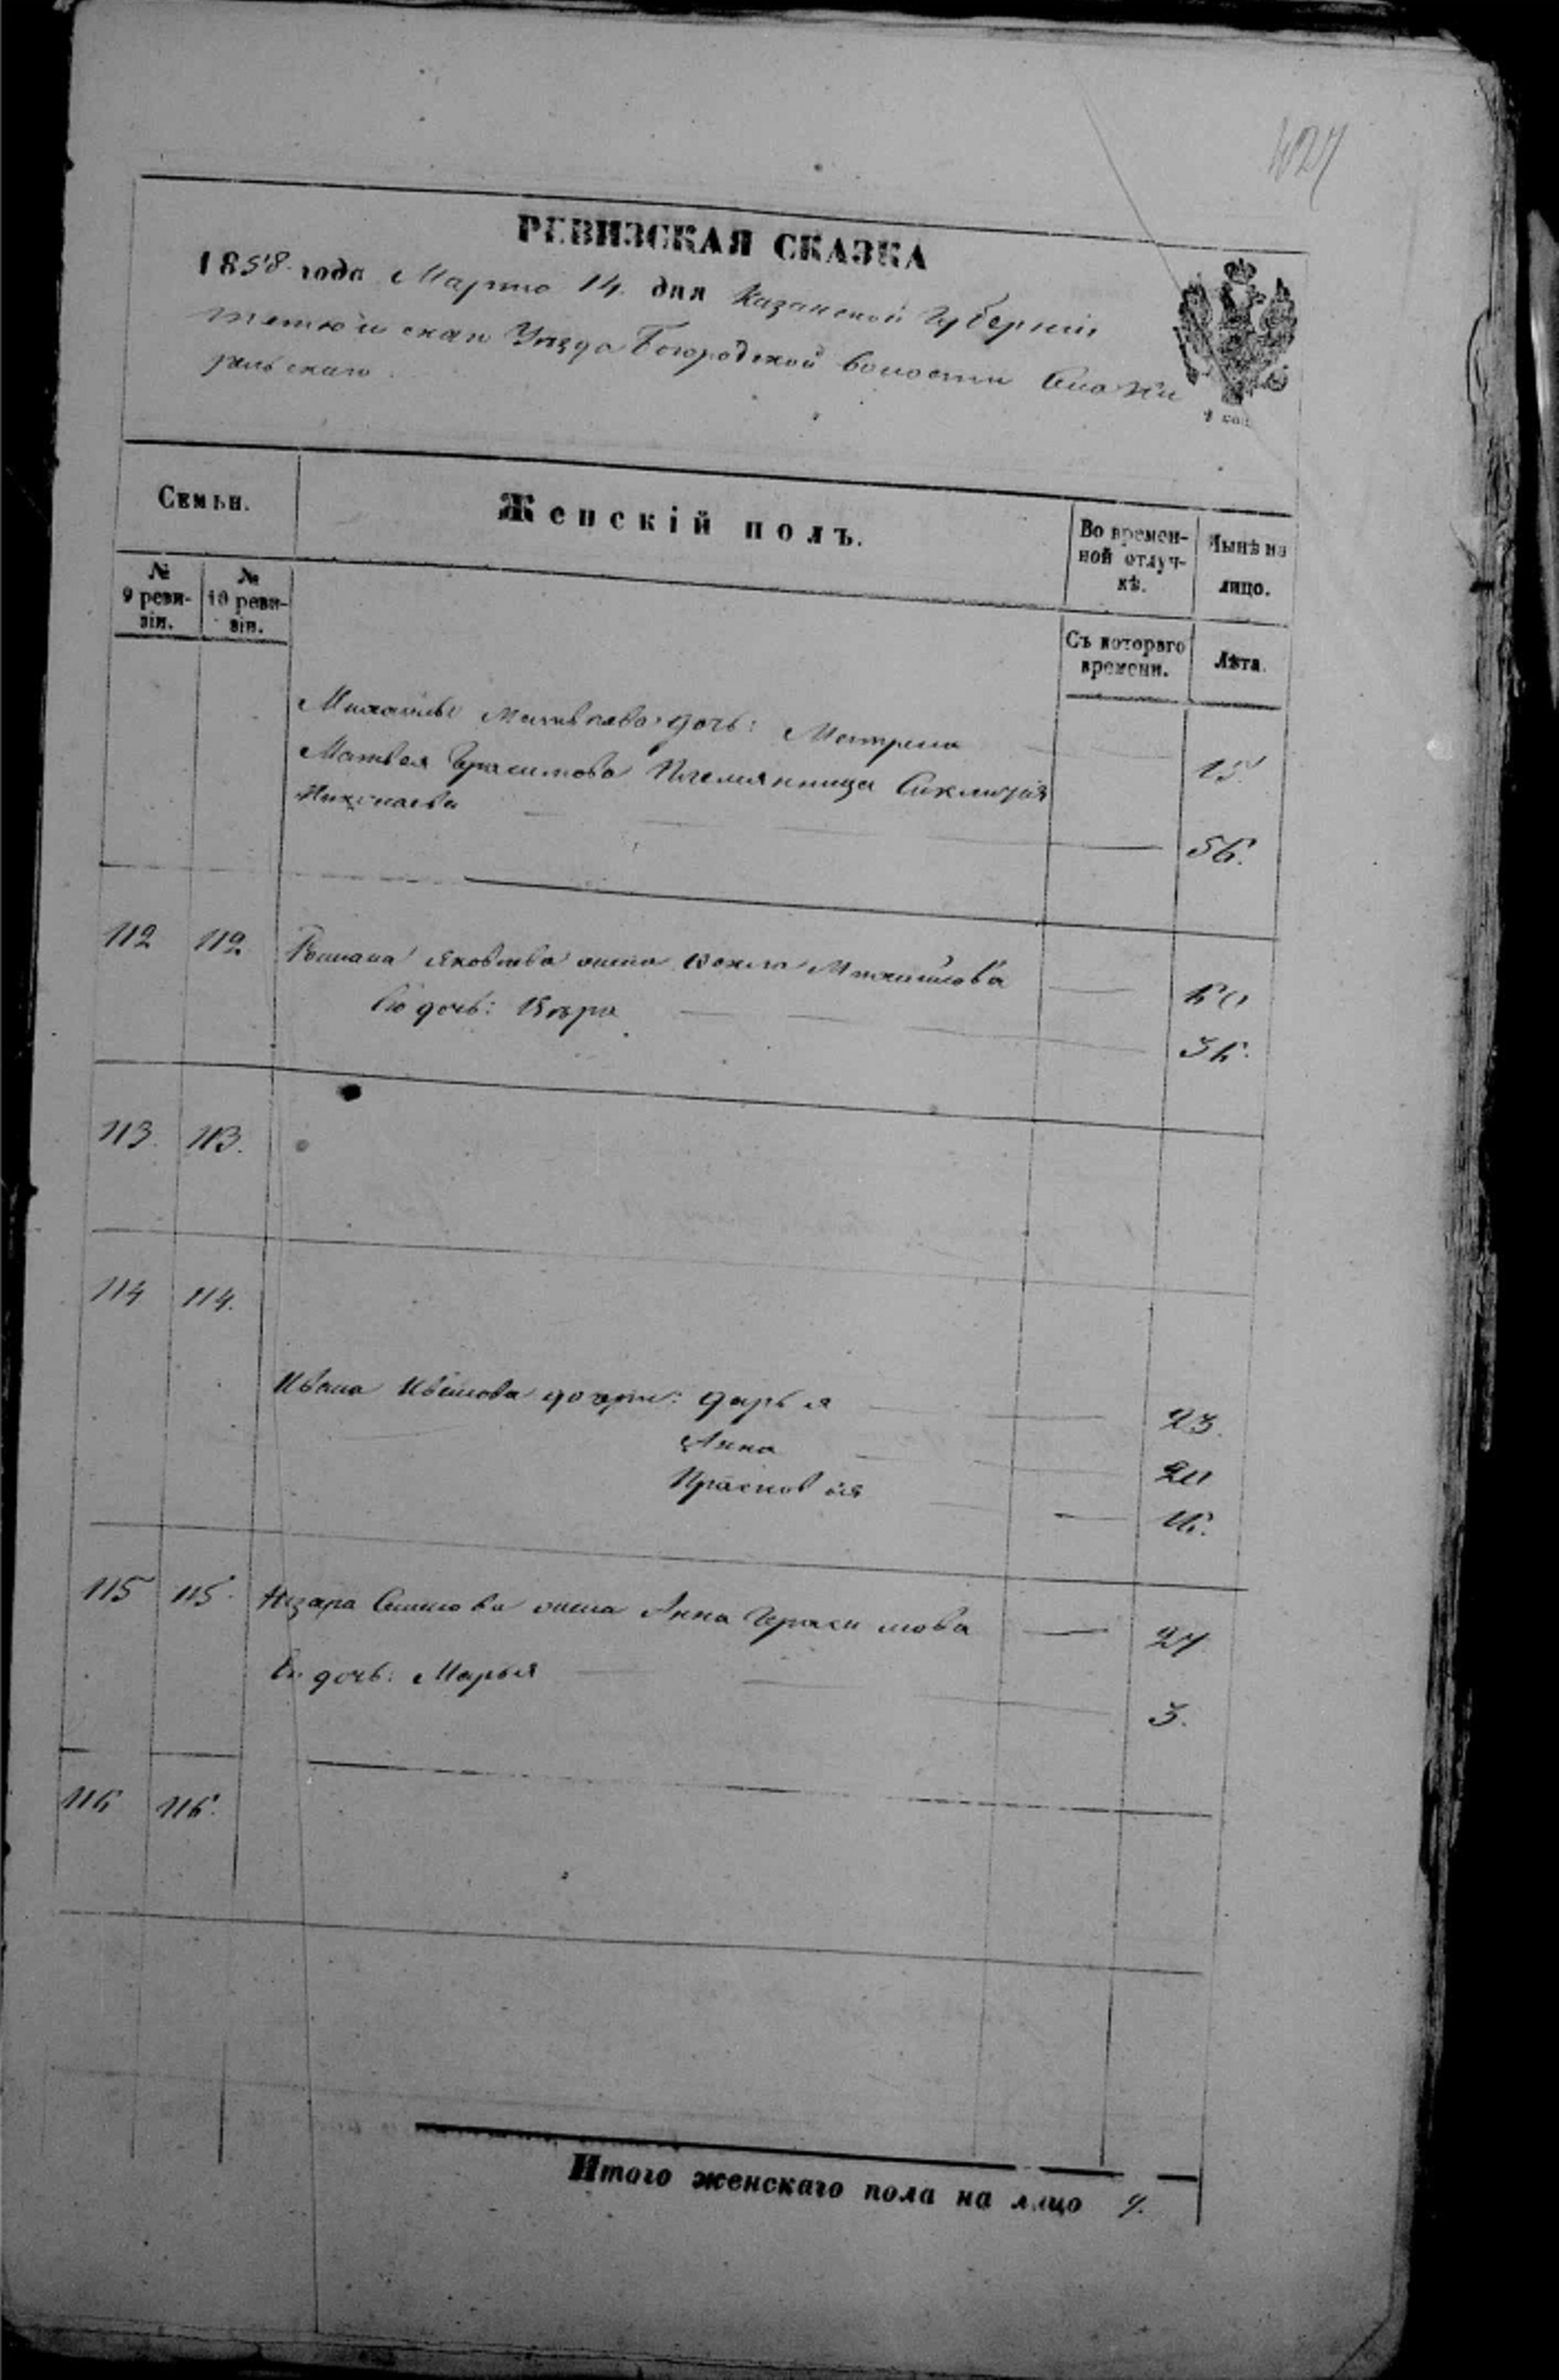 427
РЕВИЗСКАЯ СКАЗКА
1858 года Марта 14 дня Казанской Губерніи
Тетюшскаго Уѣзда Богородской волости
4 коп.
Семьи.
Женскій полъ.
Во времен-
ной отлуч-
кѣ.
Нынѣ на
лицо.
№
9 реви-
зіи.
№
10 реви-
зіи.
Съ котораго
времени.
Лѣта.
Михайлы Матвѣева дочь: Матрена 15.
Матвея Герасимова Племянница
Николаева 56.
112 112 Романа Яковлева жена Михайлова 60
Ея дочь: Вѣра 36.
113. 113.
114 114.
Ивана Иванова дочери: Дарья 23.
Анна 20
Прасковья 16.
115 115. Назара Семенова жена Анна Герасимова 27
Ея дочь: Марья 3.
116 116.
Итого женскаго пола на лицо 9.